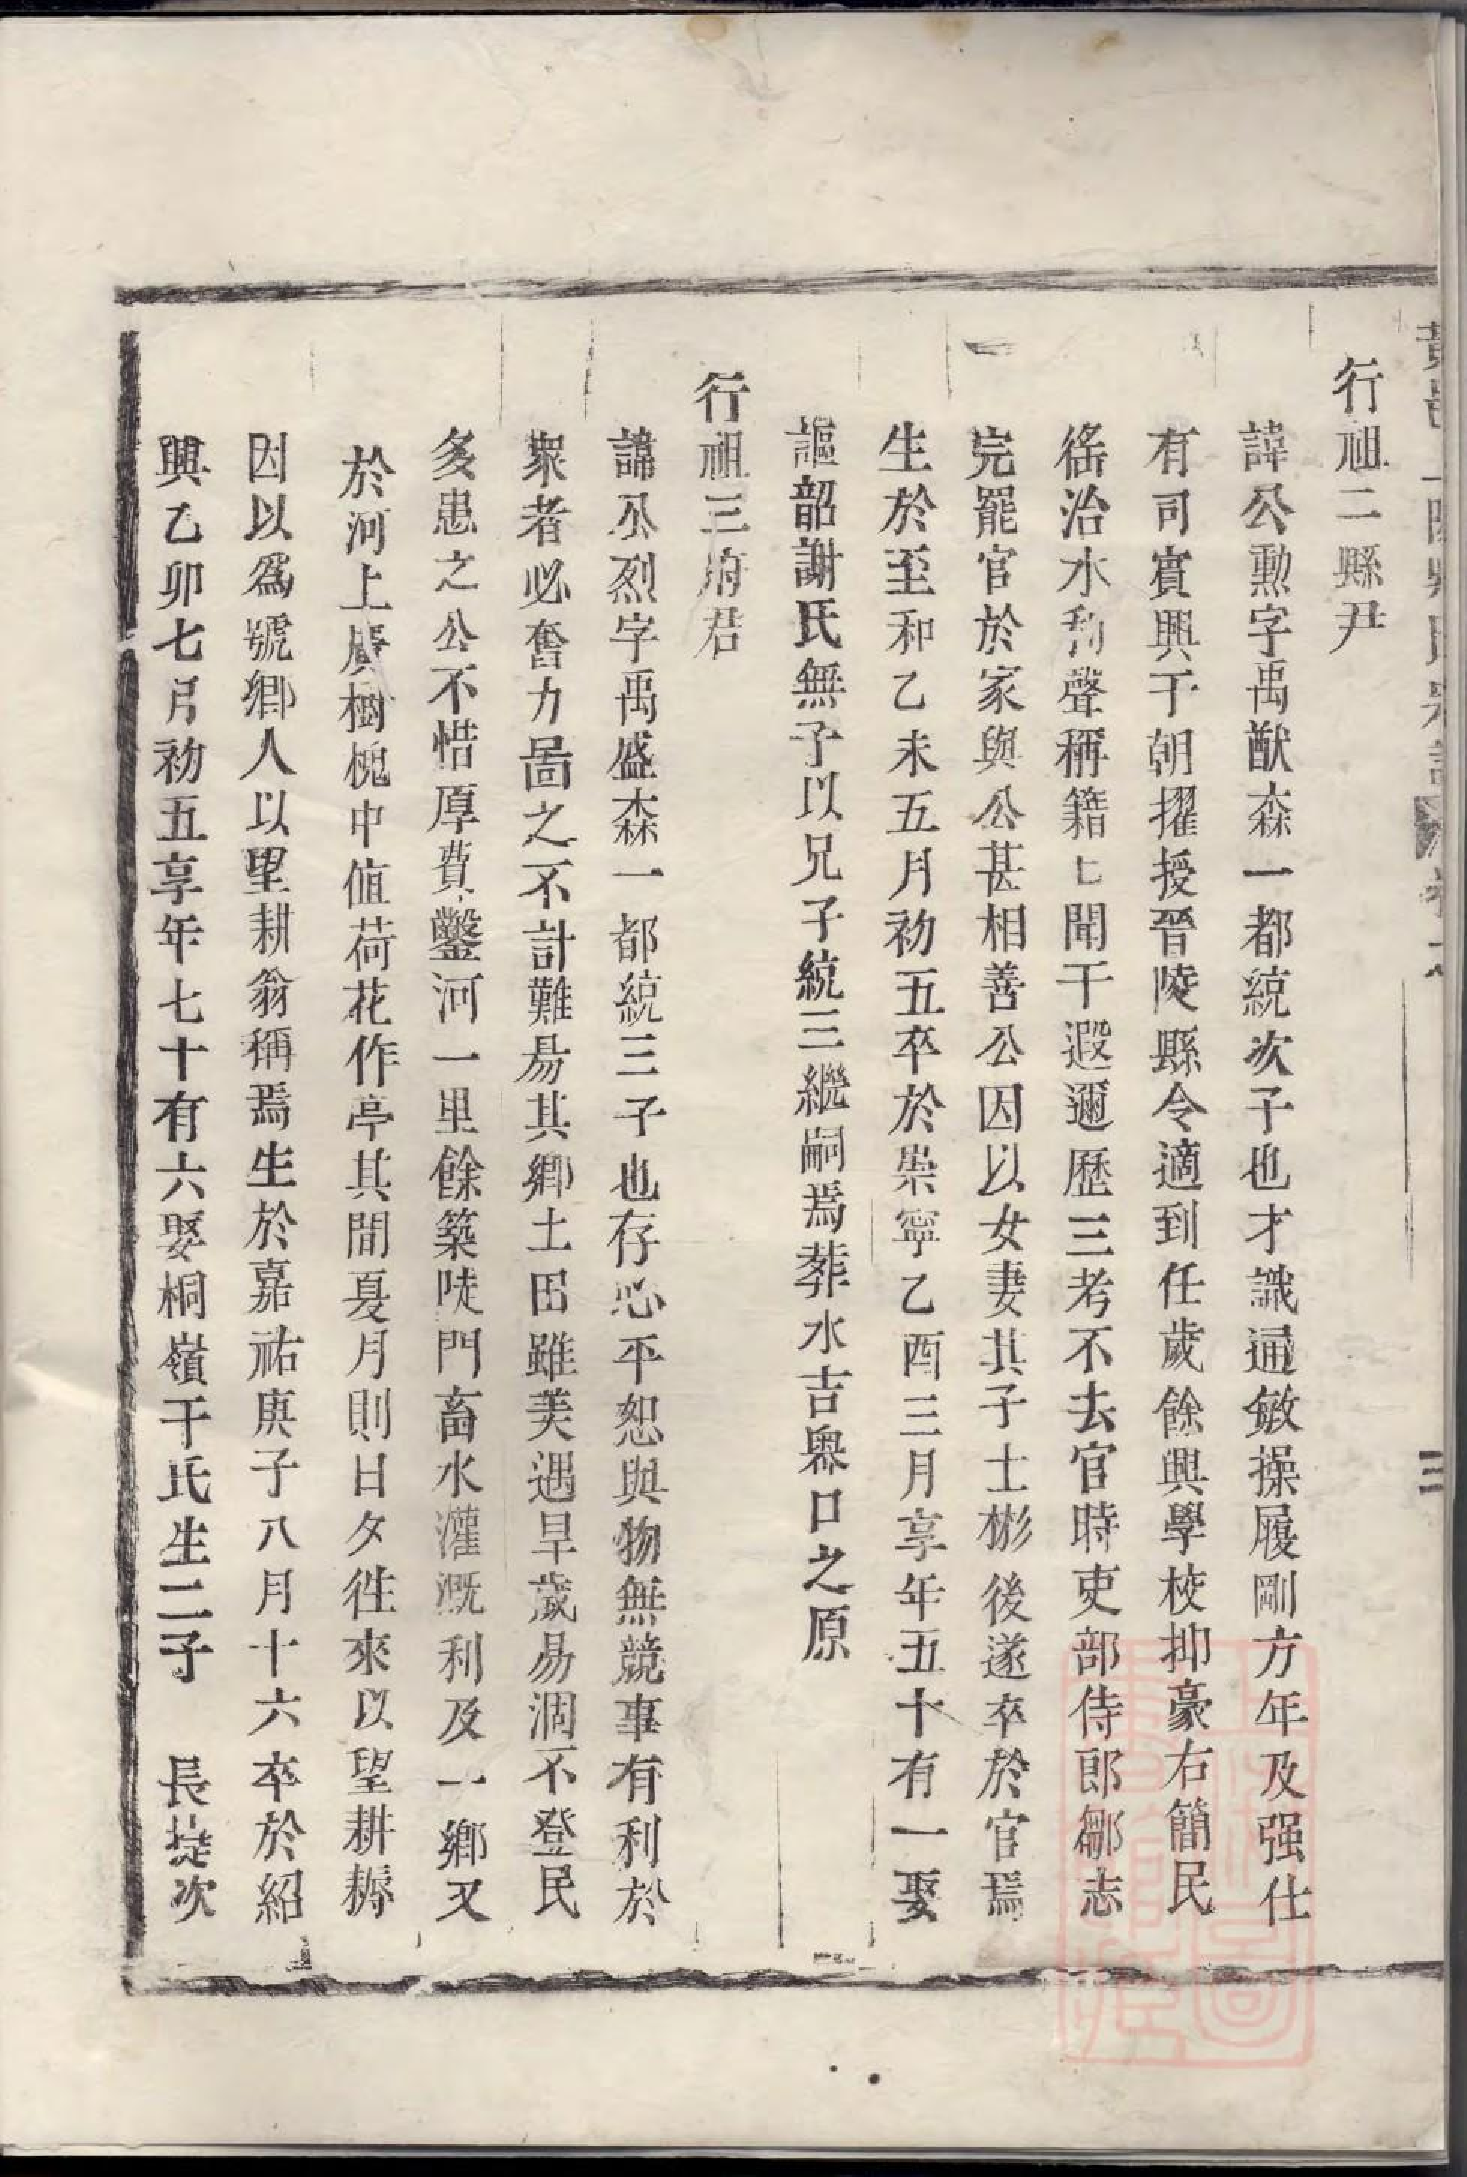 行祖二縣尹
諱公勲字禹猷森一都統次子也才識通敏操履剛方年及强仕
有司賓興于朝擢授晉陵縣令適到任歲餘興學校抑豪右簡民
徭治水利聲稱籍七聞于遐邇歷三考不去官時吏部侍郎鄒志
完罷官於家與公甚相善公因以女妻其子士彬後遂卒於官焉
生於至和乙未五月初五卒於崇寧乙酉三月享年五十有一娶
謳韶謝氏無子以兄子統三繼嗣焉葬水吉粵口之原
行祖三府君
諱公烈字禹盛森一都統三子也存心平恕與物無競事有利於
衆者必奮力啚之不計難昜其鄉土田雖美遇旱歲易涸不登民
多患之公不惜厚費鑿河一里餘築陡門畜水灌溉利及一鄉又
於河上廣樹槐中值荷花作亭其間夏月則日夕徃來以望耕耨
因以爲號鄉人以望耕翁稱焉生於嘉祐庚子八月十六卒於紹
興乙卯七月初五享年七十有六娶桐嶺干氏生二子 長㨗次
三